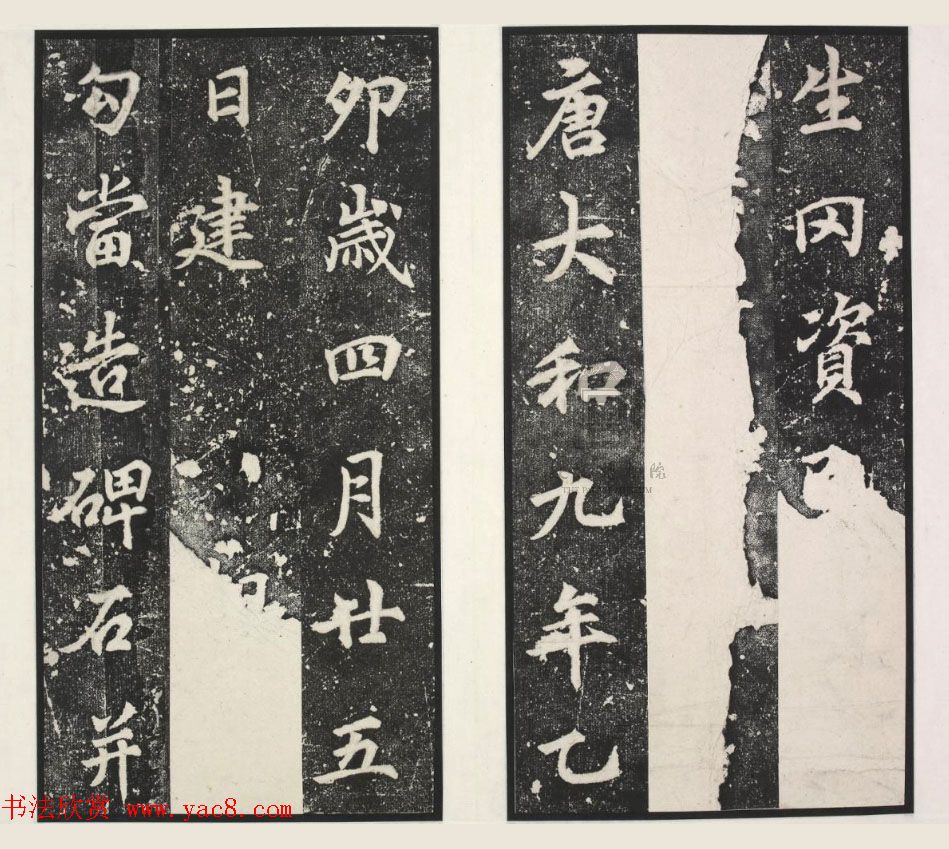 生罔資
唐大和九年乙
卯歲四月廿五
日建
勾當造碑石并
院
THE P UM
书法欣赏 www.yac8.com